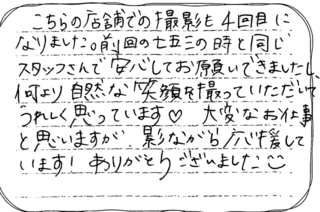 こちらの店舗での撮影も4回目に
なりました。前回の七五三の時と同じ
スタッフさんで安心してお願いできましたし、
何より自然な笑顔を撮っていただいて
うれしく思っています♡ 大変なお仕事
と思いますが、影ながら応援して
います! ありがとうございました☺